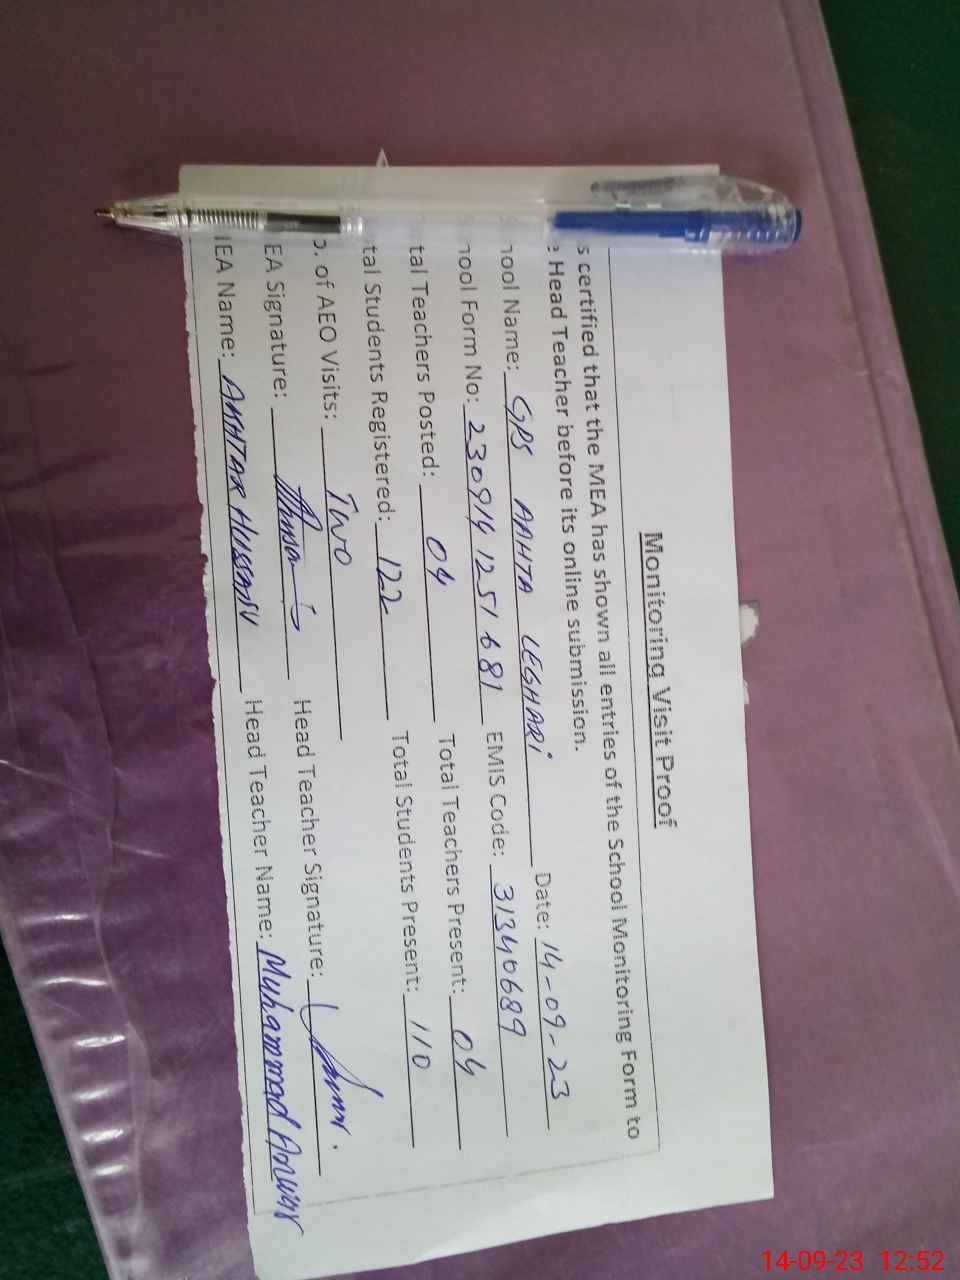 Monitoring Visit Proof
s certified that the MEA has shown all entries of the School Monitoring Form to
e Head Teacher before its online submission.
hool Name: GPS AAHTA LEGHARI Date: 14-09-23
hool Form No: 2309141251681 EMIS Code: 31340689
tal Teachers Posted: 04 Total Teachers Present: 04
tal Students Registered: 122 Total Students Present: 110
o. of AEO Visits: Two
EA Signature: Head Teacher Signature:
EA Name: AKHTAR HUSSAIN Head Teacher Name: Muhammad Anwar
14-09-23 12:52